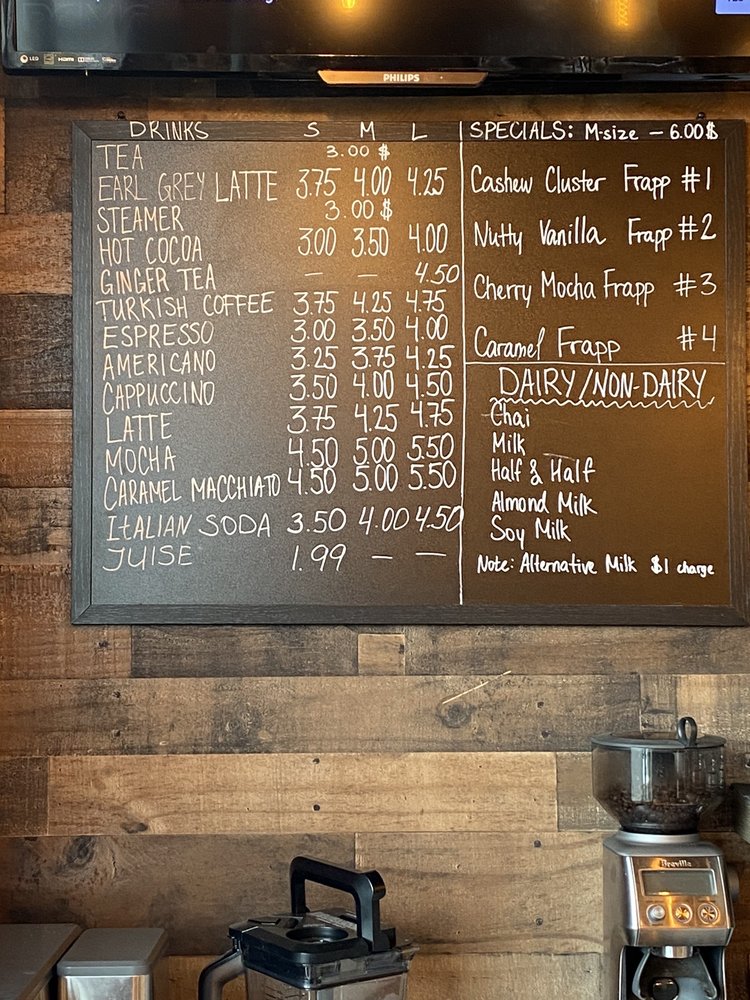 PHILIPS
DRINKS S M L
TEA 3.00 $
EARL GREY LATTE 3.75 4.00 4.25
STEAMER 3.00 $
HOT COCOA 3.00 3.50 4.00
GINGER TEA — — 4.50
TURKISH COFFEE 3.75 4.25 4.75
ESPRESSO 3.00 3.50 4.00
AMERICANO 3.25 3.75 4.25
CAPPUCCINO 3.50 4.00 4.50
LATTE 3.75 4.25 4.75
MOCHA 4.50 5.00 5.50
CARAMEL MACCHIATO 4.50 5.00 5.50
ITALIAN SODA 3.50 4.00 4.50
JUISE 1.99 — —
SPECIALS: M-size — 6.00$
Cashew Cluster Frapp #1
Nutty Vanilla Frapp #2
Cherry Mocha Frapp #3
Caramel Frapp #4
DAIRY/NON-DAIRY
Chai
Milk
Half & Half
Almond Milk
Soy Milk
Note: Alternative Milk $1 charge
Breville